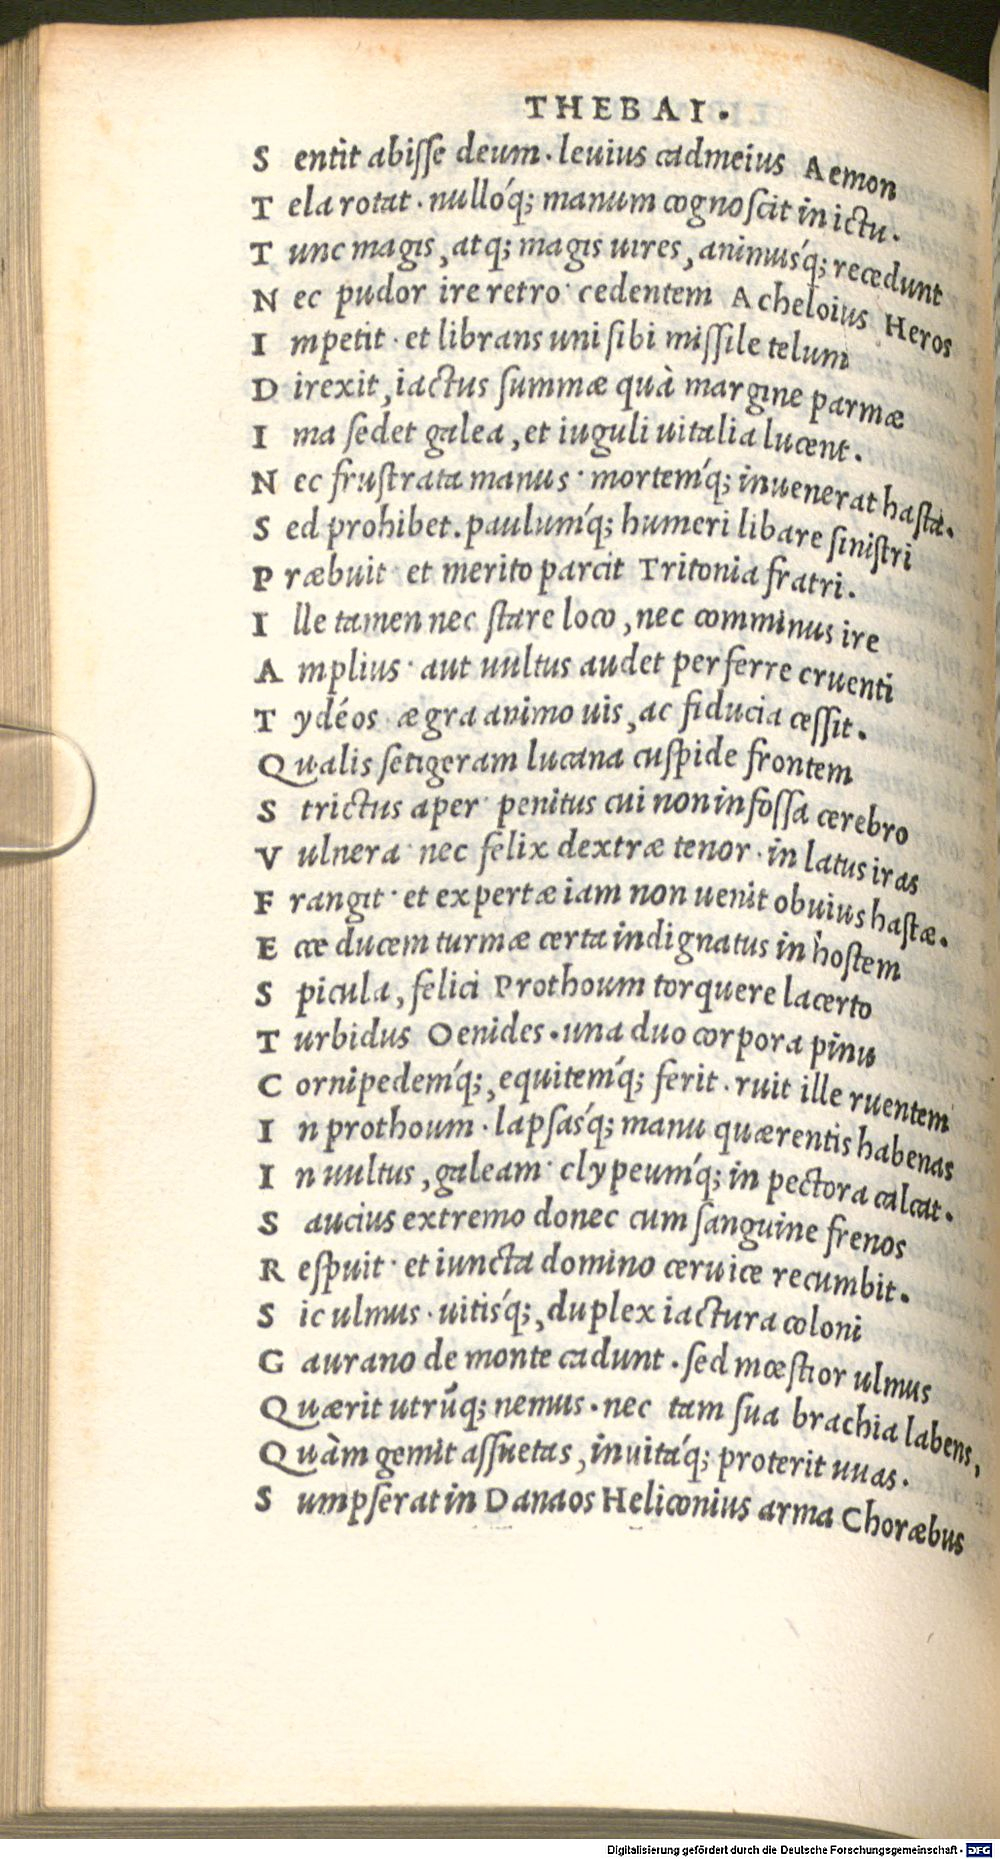 THEBAI.
S entit abisse deum. leuius cadmeius Aemon
T ela rotat. nulló́q; manum cognoscit in ictu.
T unc magis, atq; magis uires, animuśq; recedunt
N ec pudor ire retro· cedentem Acheloius Heros
I mpetit· et librans uni sibi missile telum
D irexit, iactus summæ quà margine parmæ
I ma sedet galea, et iuguli uitalia lucent.
N ec frustrata manus· morteḿq; inuenerat hasta.
S ed prohibet. pauluḿq; humeri libare sinistri
P ræbuit· et merito parcit Tritonia fratri.
I lle tamen nec stare loco, nec comminus ire
A mplius· aut uultus audet perferre cruenti
T ydéos· ægra animo uis, ac fiducia cessit.
Q ualis setigeram lucana cuspide frontem
S trictus aper· penitus cui non infossa cerebro
V ulnera· nec felix dextræ tenor· in latus iras
F rangit· et expertæ iam non uenit obuius hastæ.
E cce ducem turmæ certa indignatus in hostem
S picula, felici Prothoum torquere lacerto
T urbidus Oenides. una duo corpora pinu
C ornipedeḿq;, equiteḿq; ferit. ruit ille ruentem
I n prothoum. lapsaśq; manu quærentis habenas
I n uultus, galeam· clypeuḿq; in pectora calcat.
S aucius extremo donec cum sanguine frenos
R espuit· et iuncta domino ceruice recumbit.
S ic ulmus· uitiśq;, duplex iactura coloni
G aurano de monte cadunt. sed mœstior ulmus
Q uærit utrūq; nemus. nec tam sua brachia labens,
Q uàm gemit assuetas, inuitáq; proterit uuas.
S umpserat in Danaos Heliconius arma Choræbus
Digitalisierung gefördert durch die Deutsche Forschungsgemeinschaft - DFG